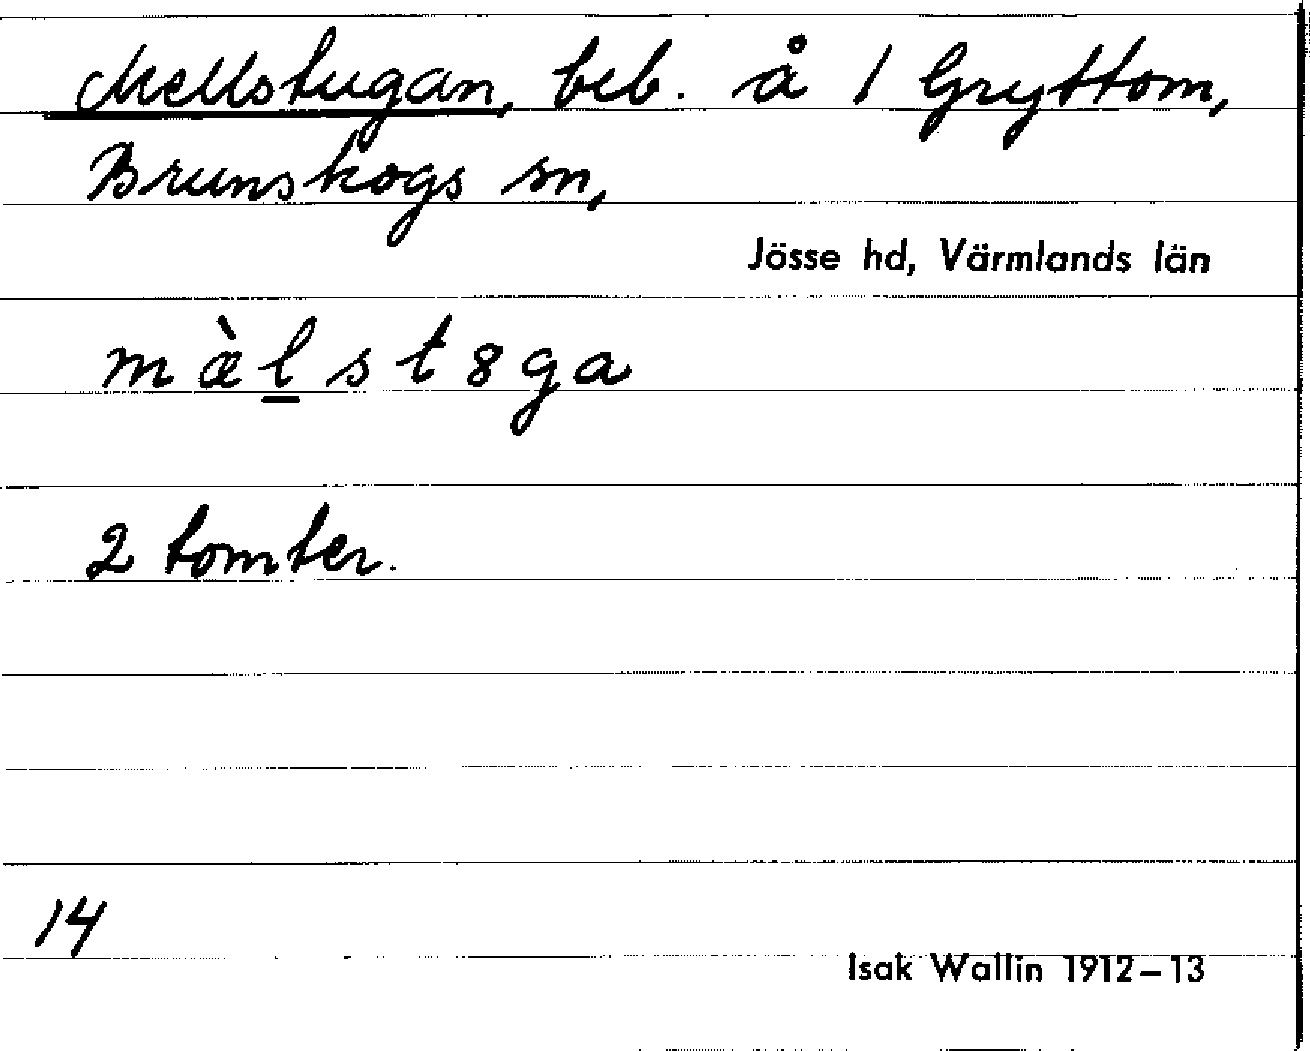 Mellstugan, beb. å 1 Gryttom,
Brunskogs sn,
Jösse hd, Värmlands län
mæ̀l̲st8ga
2 tomter.
14
Isak Wallin 1912–13